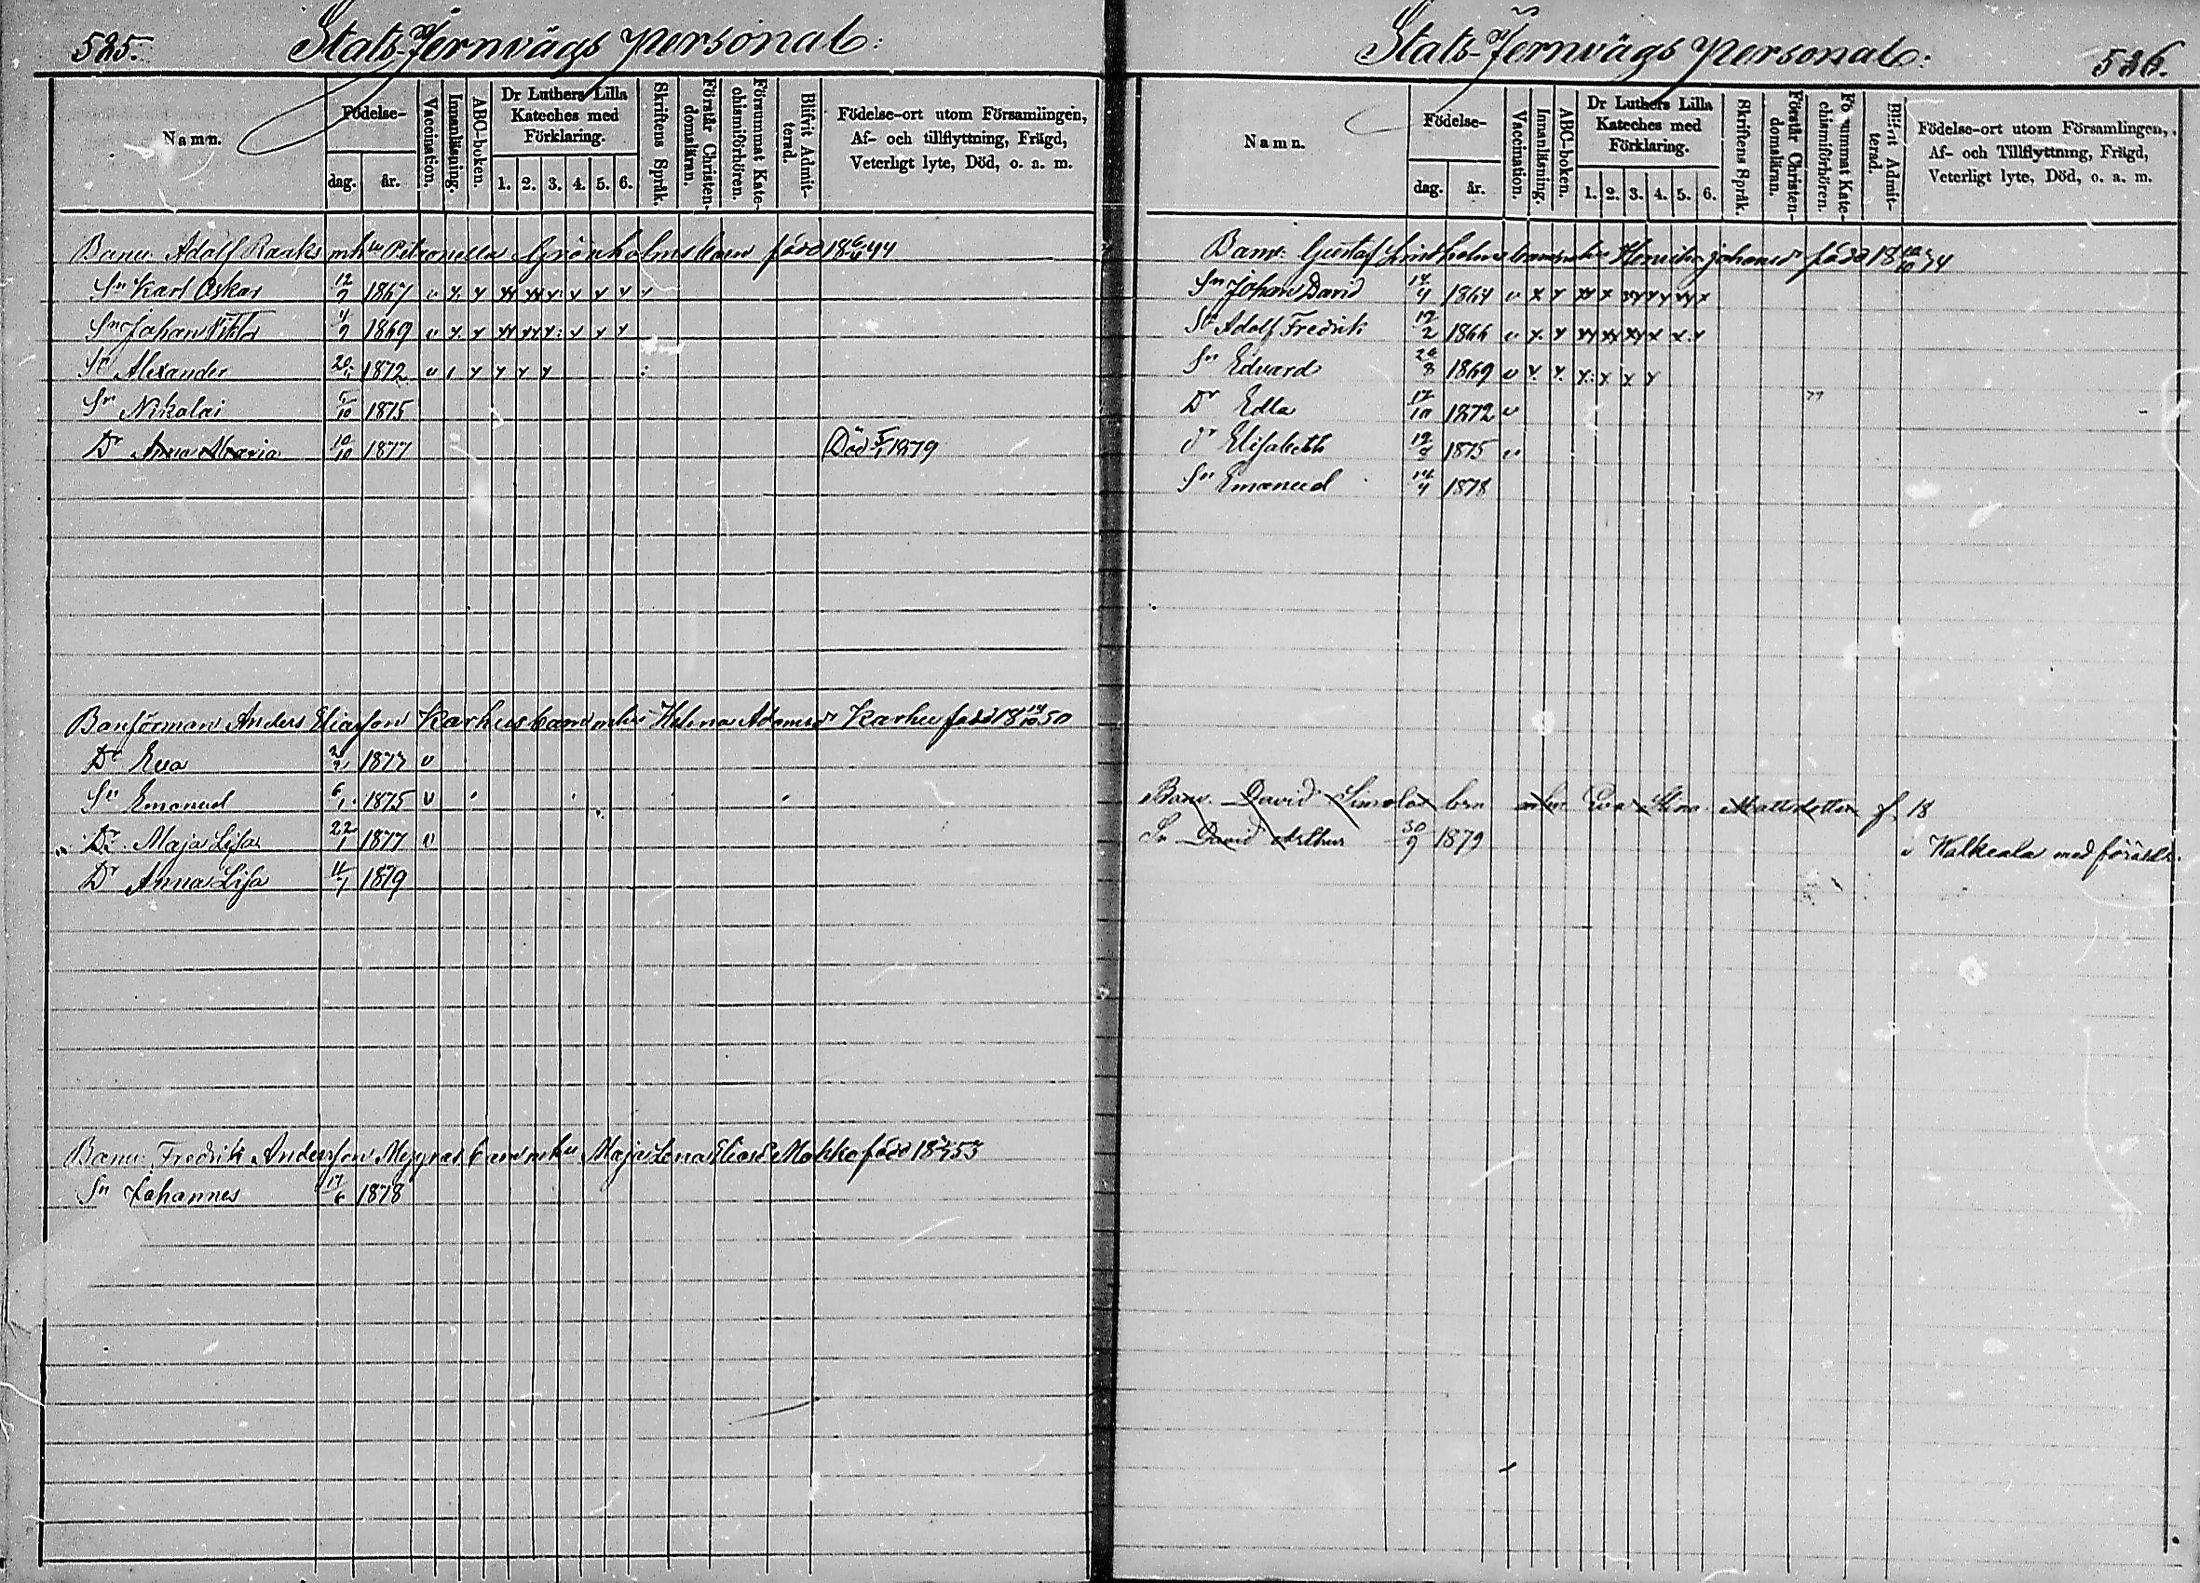 525.
Stats-Jernvägs personal:
Namn.
Födelse-
dag.
år.
Vaccination.
Innanläsning.
ABC-boken.
Dr Luthers Lilla
Kateches med
Förklaring.
1. 2. 3. 4. 5. 6.
Skriftens Språk.
Förstår Christen-
domsläran.
Försummat Kate-
chismiförhören.
Blifvit Admit-
terad.
Födelse-ort utom Församlingen,
Af- och tillflyttning, Frägd,
Veterligt lyte, Död, o. a. m.
Banv. Adolf Raaks mhu Petronella Grönholms barn född 18 44
Sn Karl Oskar 12/7 1867 v
Sn Johan Viktor 1869 v
Sn Alexander 1872 v
Sn Nikolai 1875
Dr Anna Maria 10/10 1877 Död 1879
Banförman Anders Eliasson Karhus barn mhu Helena Adamsdr Karhu född 18 50
Dr Eva 1873 v
Sn Emanuel 6/1 1875 v
Dr Maja Lisa 22/1 1877 v
Dr Anna Lisa 11/1 1879
Banv. Fredrik Andersson barn mhu Maja Lena Eliasdr Mokka född 18 53
Sn Johannes 17/6 1878
Stats-Jernvägs personal:
526.
Namn.
Födelse-
dag.
år.
Vaccination.
Innanläsning.
ABC-boken.
Dr Luthers Lilla
Kateches med
Förklaring.
1. 2. 3. 4. 5. 6.
Skriftens Språk.
Förstår Christen-
domsläran.
Försummat Kate-
chismiförhören.
Blifvit Admit-
terad.
Födelse-ort utom Församlingen,
Af- och Tillflyttning, Frägd,
Veterligt lyte, Död, o. a. m.
Banv. Gustaf Lindholms barn mhu Henrika Johansdr född 18 34
Sn Johan David 14/4 1864 v
Sn Adolf Fredrik 12/2 1866 v
Sn Edvard 1869 v
Dr Edla 12/10 1872 v
Dr Elisabeth 1875 v
Sn Emanuel 14/4 1878
Banv. David Simola brn mhu Eva Stina Mattsdotter f. 18
Sn David Arthur 30/9 1879 Walkeala med föräldr.